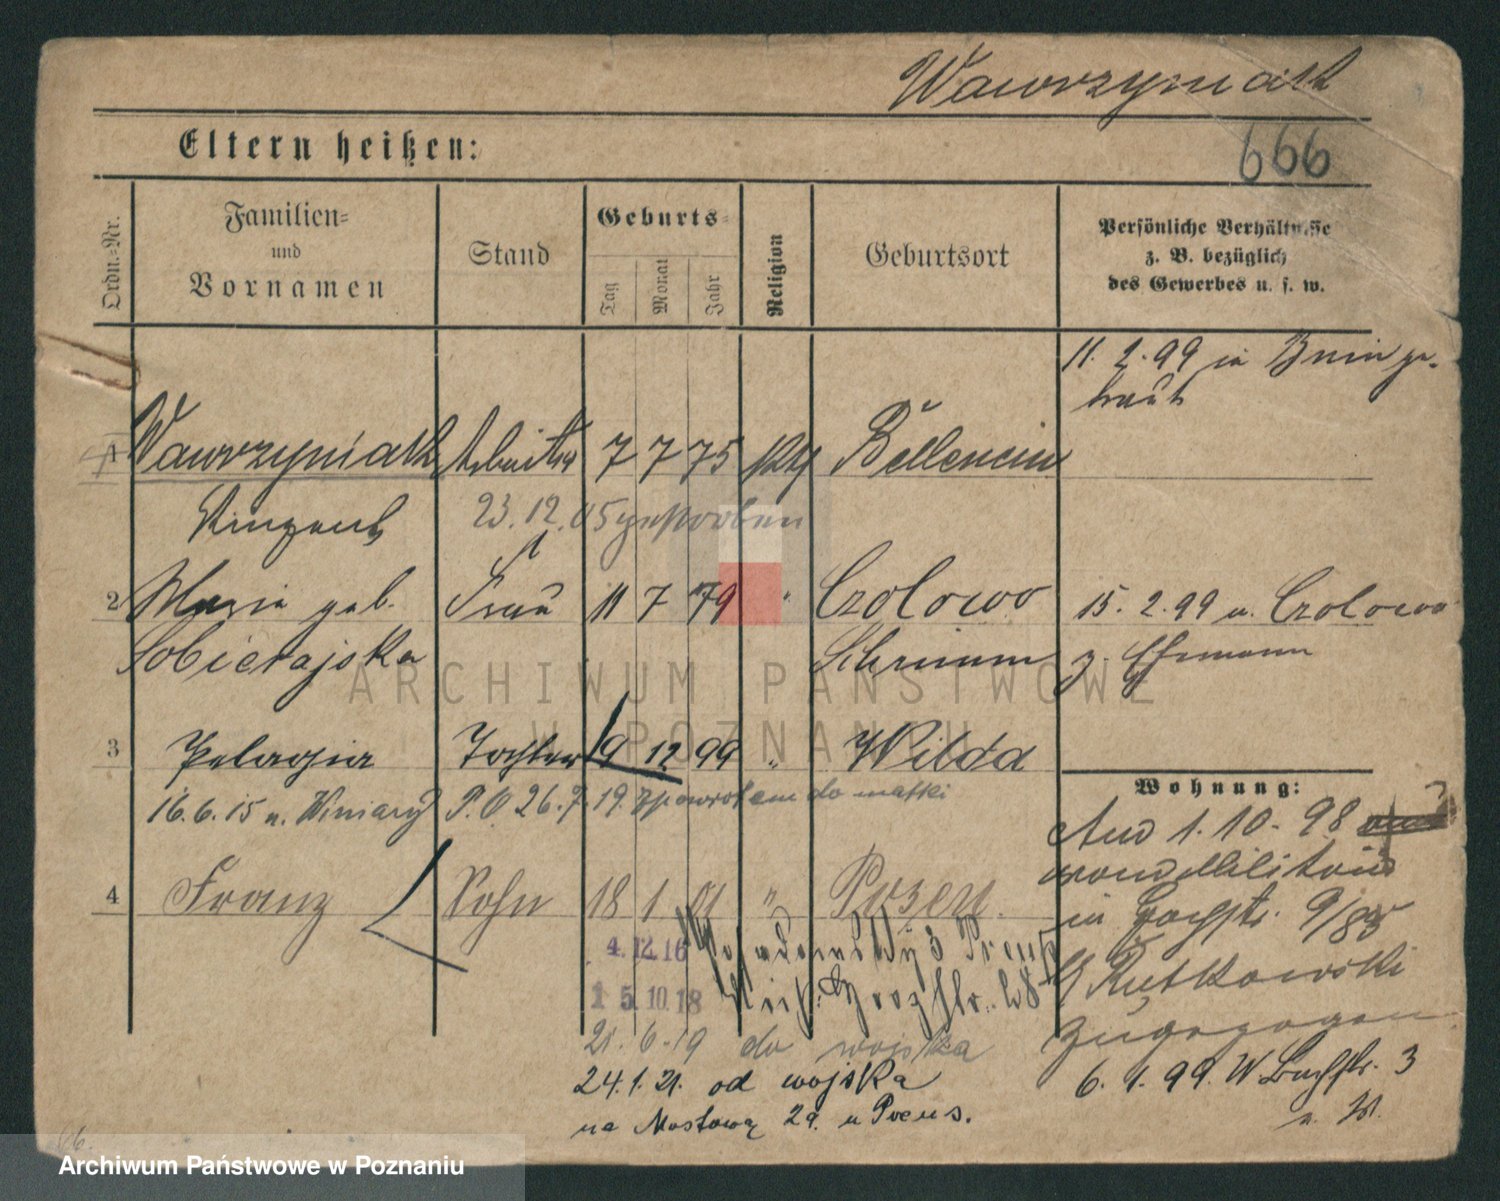 Wawrzyniak
666
Eltern heißen:
Ordn.-Nr.
Familien- und Vornamen
Stand
Geburts-
Tag
Monat
Jahr
Religion
Geburtsort
Persönliche Verhältnisse
z. B. bezüglich
des Gewerbes u. s. w.
11. 2. 99 in Bnin ge-
traut
1 Wawrzyniak Arbeiter 7 7 75 Bellencin
Vinzent 23. 12. 05 gestorben
2 Marie geb. Frau 11 7 79 " Czolowo 15. 2. 99 n. Czolowo
Sobierajska Schrimm z. Ehemann
3 Pelagia Tochter 19 12 99 " Wilda
16. 6. 15 n. Winiary P. O 26. 7. 19. zpowrotem do matki
Wohnung:
Am 1. 10. 98
vom Militair
4 Franz Sohn 18 1 01 " Posen.
in 9/85
4. 12. 16
b Rutkowski
15. 10. 18
zugezogen
21. 6. 19 do wojska
6. 1. 99. W. 3
24. 1. 21. od wojska
na Mostową 2a. u Preus.
ARCHIWUM PAŃSTWOWE
W POZNANIU
Archiwum Państwowe w Poznaniu